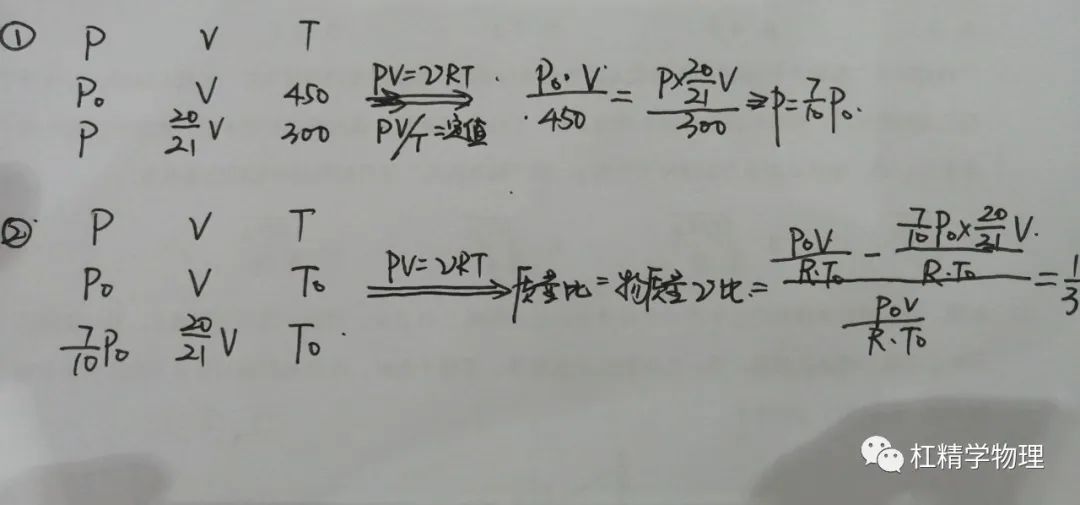 ① P V T
P₀ V 450 PV=νRT P₀·V/450 = P×20/21V/300 ⇒ P=7/10P₀.
P 20/21V 300 PV/T=定值
② P V T
P₀ V T₀ PV=νRT 质量比=物质量ν比= (P₀V/R·T₀ - 7/10P₀×20/21V/R·T₀)/(P₀V/R·T₀) = 1/3
7/10P₀ 20/21V T₀
杠精学物理